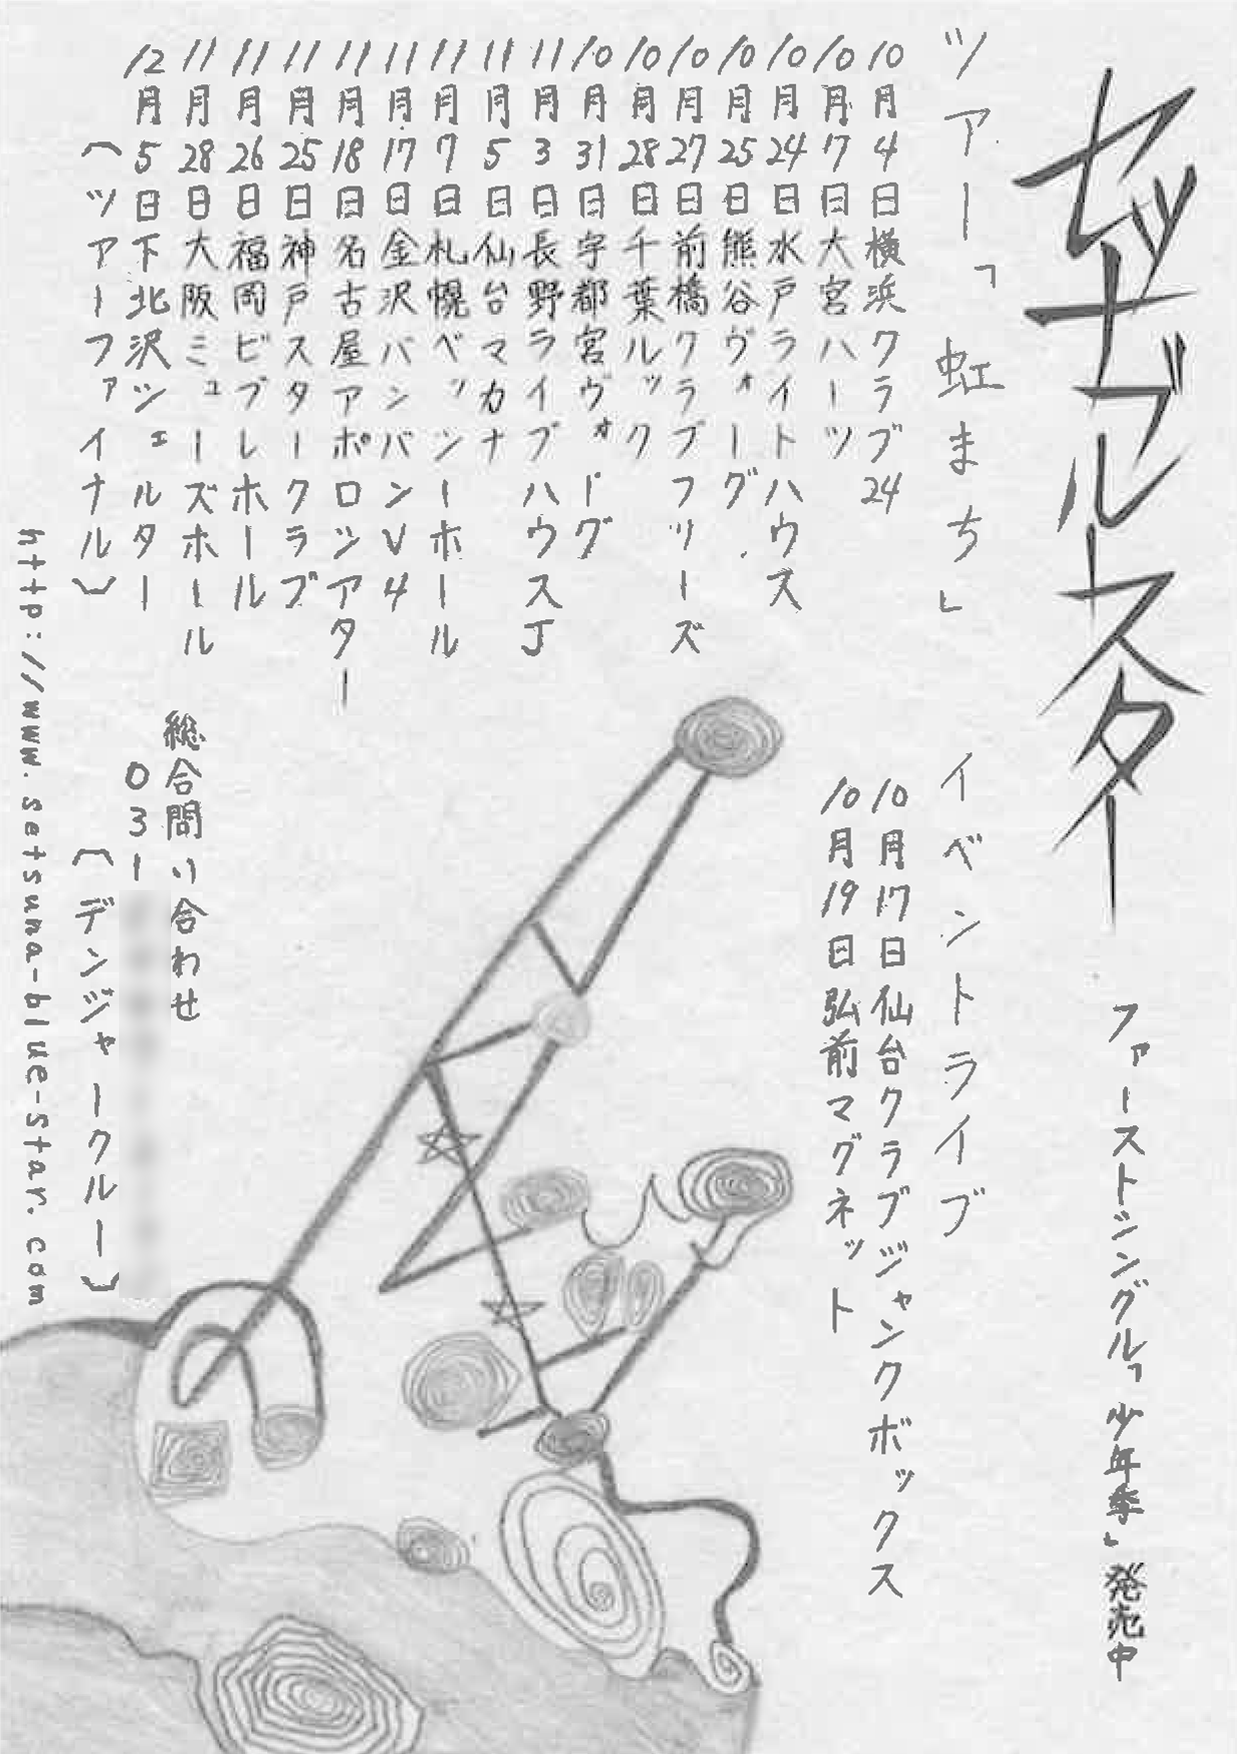 セツナブルースター
ファーストシングル「少年季」発売中
ツアー「虹まち」
10月4日横浜クラブ24
10月7日大宮ハーツ
10月24日水戸ライトハウス
10月25日熊谷ヴォーグ
10月27日前橋クラブフリーズ
10月28日千葉ルック
10月31日宇都宮ヴォーグ
11月3日長野ライブハウスJ
11月5日仙台マカナ
11月7日札幌ベッシーホール
11月17日金沢バンバンV4
11月18日名古屋アポロシアター
11月25日神戸スタークラブ
11月26日福岡ビブレホール
11月28日大阪ミューズホール
12月5日下北沢シェルター
(ツアーファイナル)
イベントライブ
10月17日仙台クラブジャンクボックス
10月19日弘前マグネット
総合問い合わせ
03-
(デンジャークルー)
http://www.setsuna-blue-star.com